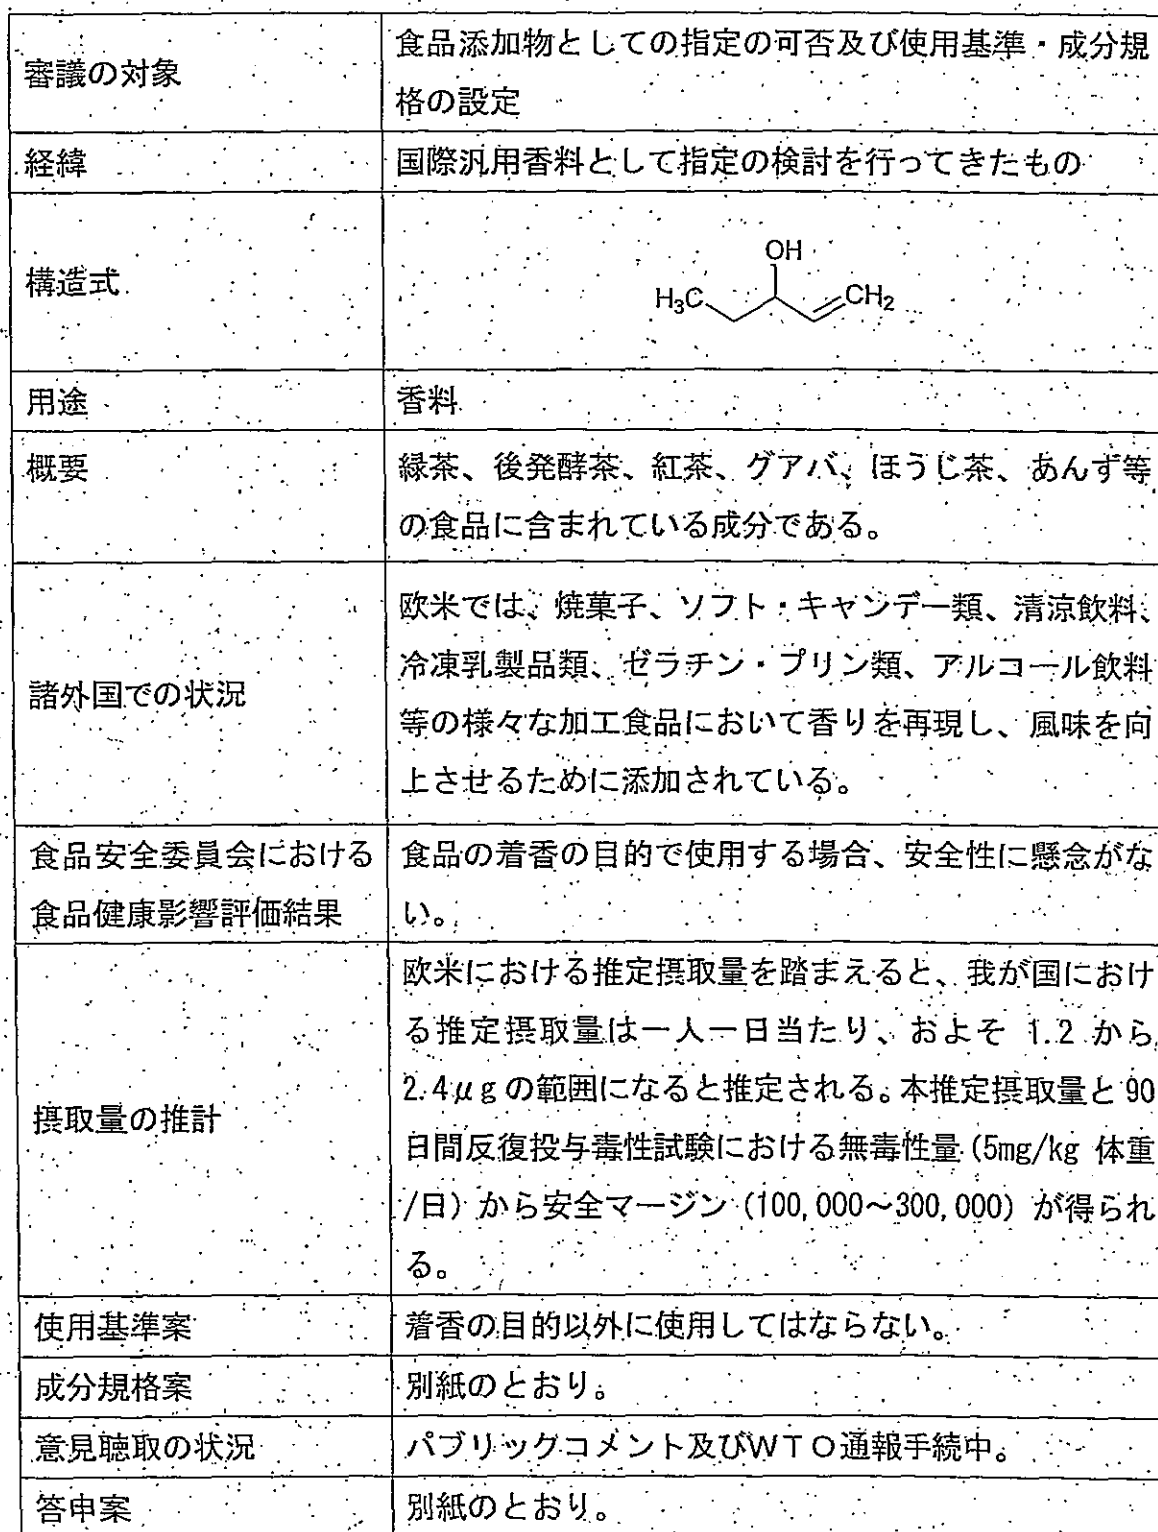 審議の対象
食品添加物としての指定の可否及び使用基準・成分規
格の設定
経緯
国際汎用香料として指定の検討を行ってきたもの
構造式
OH
H₃C
CH₂
用途
香料
概要
緑茶、後発酵茶、紅茶、グアバ、ほうじ茶、あんず等
の食品に含まれている成分である。
諸外国での状況
欧米では、焼菓子、ソフト・キャンデー類、清涼飲料、
冷凍乳製品類、ゼラチン・プリン類、アルコール飲料
等の様々な加工食品において香りを再現し、風味を向
上させるために添加されている。
食品安全委員会における
食品健康影響評価結果
食品の着香の目的で使用する場合、安全性に懸念がな
い。
摂取量の推計
欧米における推定摂取量を踏まえると、我が国におけ
る推定摂取量は一人一日当たり、およそ 1.2 から
2.4μgの範囲になると推定される。本推定摂取量と 90
日間反復投与毒性試験における無毒性量 (5mg/kg 体重
/日) から安全マージン (100,000～300,000) が得られ
る。
使用基準案
着香の目的以外に使用してはならない。
成分規格案
別紙のとおり。
意見聴取の状況
パブリックコメント及びWTO通報手続中。
答申案
別紙のとおり。